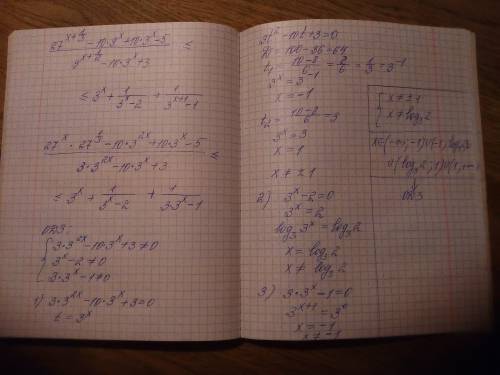 (27^(x+1/3) - 10·9^x + 10·3^x - 5) / (9^(x+1/2) - 10·3^x + 3) ≤
≤ 3^x + 1/(3^x - 2) + 1/(3^(x+1) - 1)
(27^x · 27^(1/3) - 10·3^(2x) + 10·3^x - 5) / (3·3^(2x) - 10·3^x + 3) ≤
≤ 3^x + 1/(3^x - 2) + 1/(3·3^x - 1)
ОДЗ:
3·3^(2x) - 10·3^x + 3 ≠ 0
3^x - 2 ≠ 0
3·3^x - 1 ≠ 0
1) 3·3^(2x) - 10·3^x + 3 = 0
t = 3^x
3t² - 10t + 3 = 0
D = 100 - 36 = 64
t₁ = (10-8)/6 = 2/6 = 1/3 = 3^(-1)
3^x = 3^(-1)
x = -1
t₂ = (10+8)/6 = 3
3^x = 3
x = 1
x ≠ ±1
2) 3^x - 2 = 0
3^x = 2
log₃ 3^x = log₃ 2
x = log₃ 2
x ≠ log₃ 2
3) 3·3^x - 1 = 0
3^(x+1) = 3^0
x = -1
x ≠ -1
x ≠ ±1
x ≠ log₃ 2
x∈(-∞;-1)∪(-1;log₃2)∪
∪(log₃2;1)∪(1;+∞)
ОДЗ